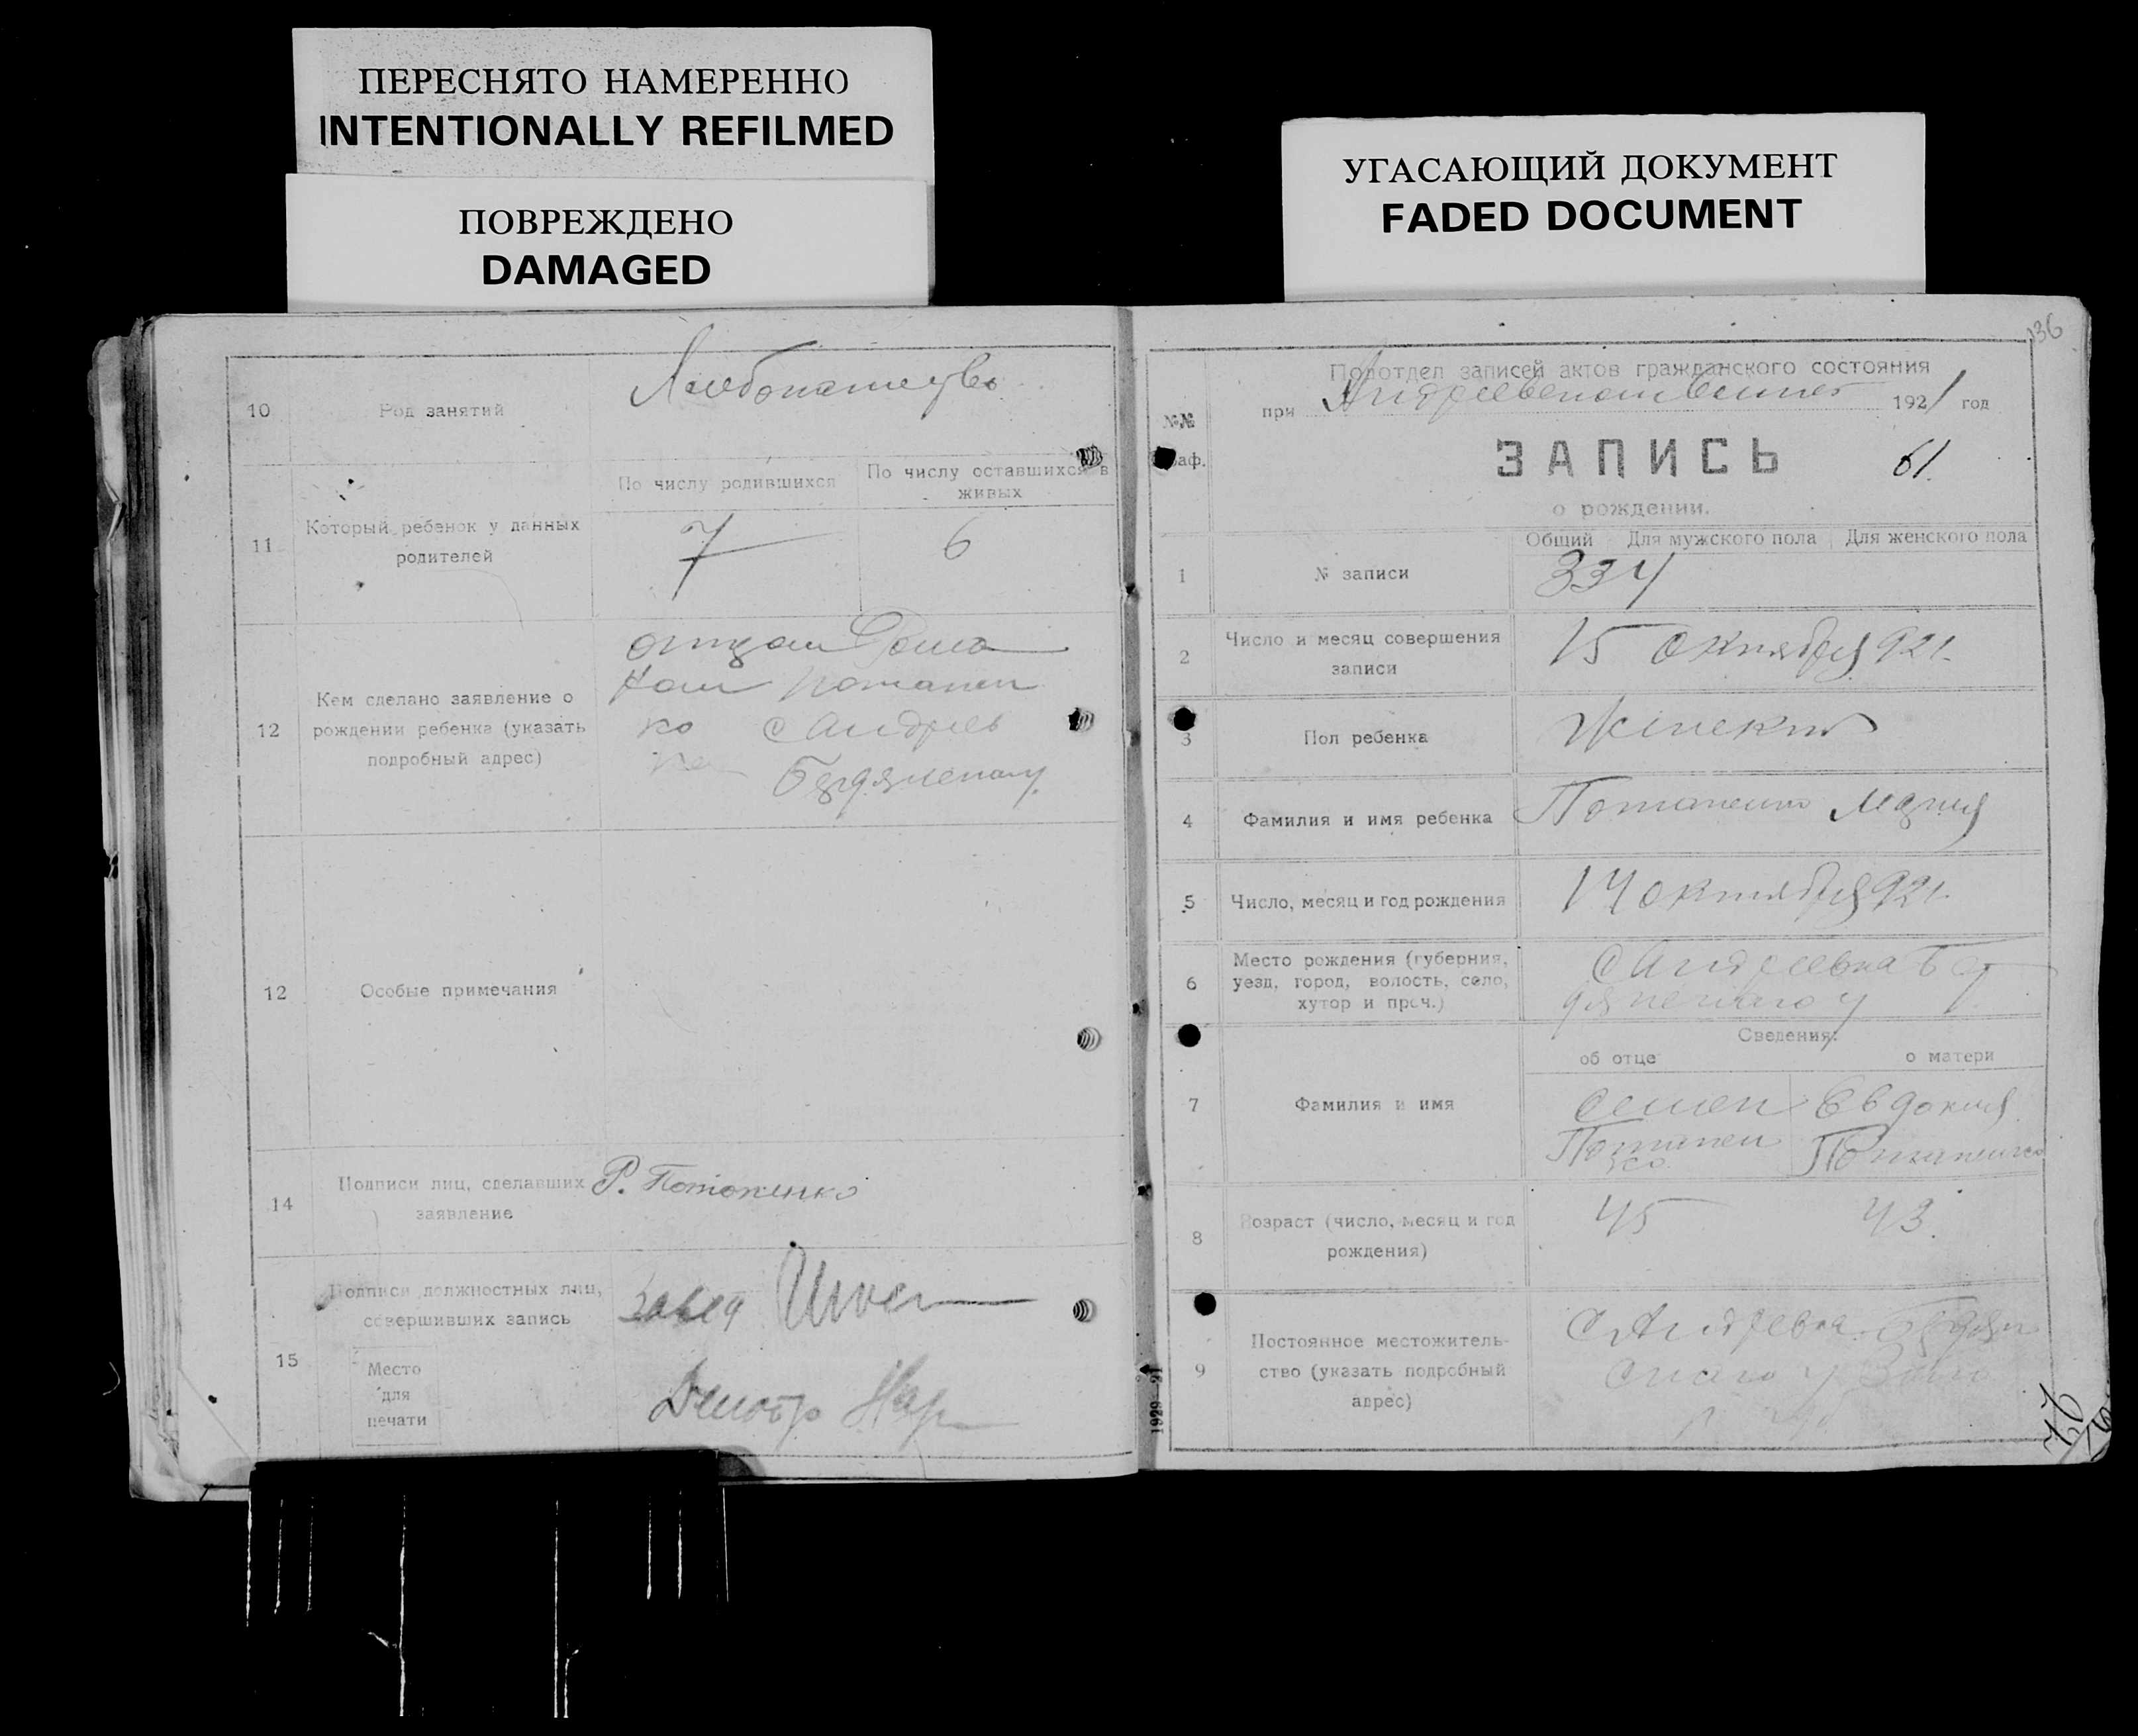 ПЕРЕСНЯТО НАМЕРЕННО
INTENTIONALLY REFILMED
ПОВРЕЖДЕНО
DAMAGED
УГАСАЮЩИЙ ДОКУМЕНТ
FADED DOCUMENT
10 Род занятий
Хлебопашество
11 Который ребенок у данных
родителей
По числу родившихся
По числу оставшихся в
живых
7 6
12 Кем сделано заявление о
рождении ребенка (указать
подробный адрес)
отцом
Потапен
ко с Андреев
Бердянского у.
12 Особые примечания
14 Подписи лиц, сделавших
заявление
Р. Потопенко
15 Подписи должностных лиц,
совершивших запись
Завед
Место
для
печати
136
Подотдел записей актов гражданского состояния
при 1921 год
№№
граф.
ЗАПИСЬ 61.
о рождении.
Общий Для мужского пола Для женского пола
1 № записи 334
2 Число и месяц совершения
записи
15 Октября 921.
3 Пол ребенка
4 Фамилия и имя ребенка Потапенко Мария
5 Число, месяц и год рождения 14 октября 921.
6 Место рождения (губерния,
уезд, город, волость, село,
хутор и проч.)
С Андреевка Бер
дянского у
Сведения:
об отце о матери
7 Фамилия и имя
Семен Евдокия
Потапен Потапенко
ко
8 Возраст (число, месяц и год
рождения)
45 43.
9 Постоянное местожитель-
ство (указать подробный
адрес)
С Андреевка Бердян
ского у
1929 91